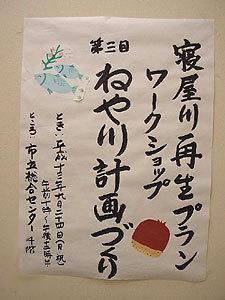 寝屋川再生プラン
ワークショップ
第三回
ねや川計画づくり
とき・平成十三年九月二十四日(月・祝)
午前十時〜午後五時半
ところ・市立総合センター4階